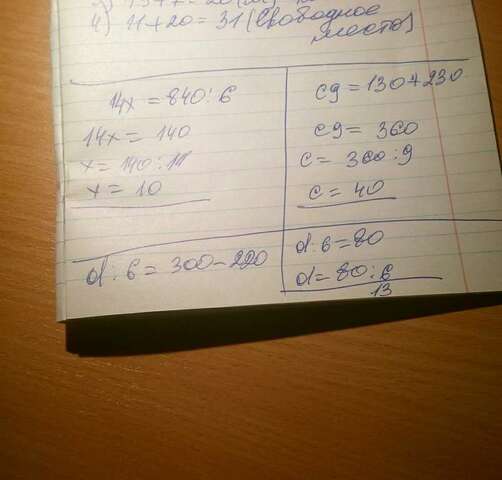 4) 11+20=31 (свободное
место)
14x = 840:6
14x = 140
x = 140:14
x = 10
c9 = 130+230
c9 = 360
c = 360:9
c = 40
d:6 = 300-220
d:6 = 80
d = 80:6
13